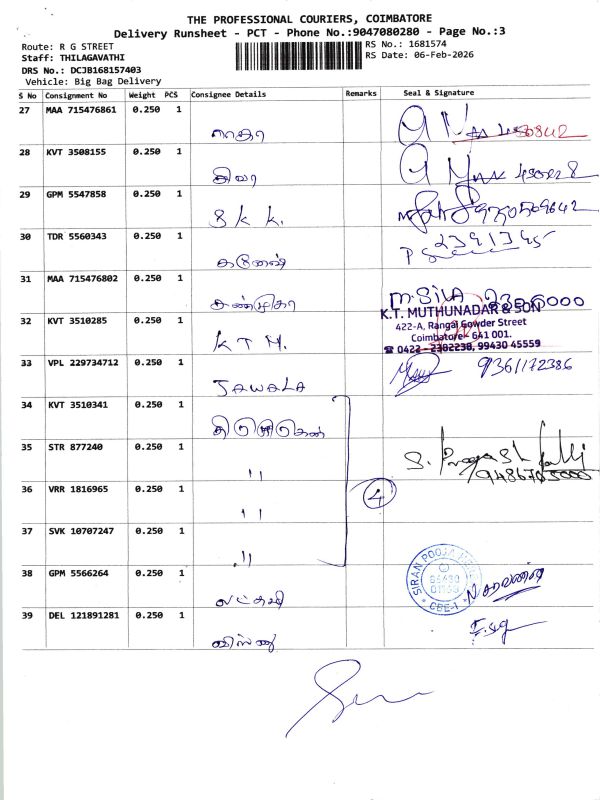 THE PROFESSIONAL COURIERS, COIMBATORE
Delivery Runsheet - PCT - Phone No.:9047080280 - Page No.:3
Route: R G STREET
RS No.: 1681574
Staff: THILAGAVATHI
RS Date: 06-Feb-2026
DRS No.: DCJB168157403
Vehicle: Big Bag Delivery
S No Consignment No Weight PCS Consignee Details Remarks Seal & Signature
27 MAA 715476861 0.250 1
28 KVT 3508155 0.250 1
29 GPM 5547858 0.250 1
S K K.
30 TDR 5560343 0.250 1
கணேஷ்
31 MAA 715476802 0.250 1
32 KVT 3510285 0.250 1
K T M.
K.T. MUTHUNADAR & SON
422-A, Rangai Gowder Street
Coimbatore - 641 001.
☎ 0422 - 2382238, 99430 45559
33 VPL 229734712 0.250 1
JAWALA
9361172386
34 KVT 3510341 0.250 1
35 STR 877240 0.250 1
"
36 VRR 1816965 0.250 1
"
4
37 SVK 10707247 0.250 1
"
38 GPM 5566264 0.250 1
லட்சுமி
39 DEL 121891281 0.250 1